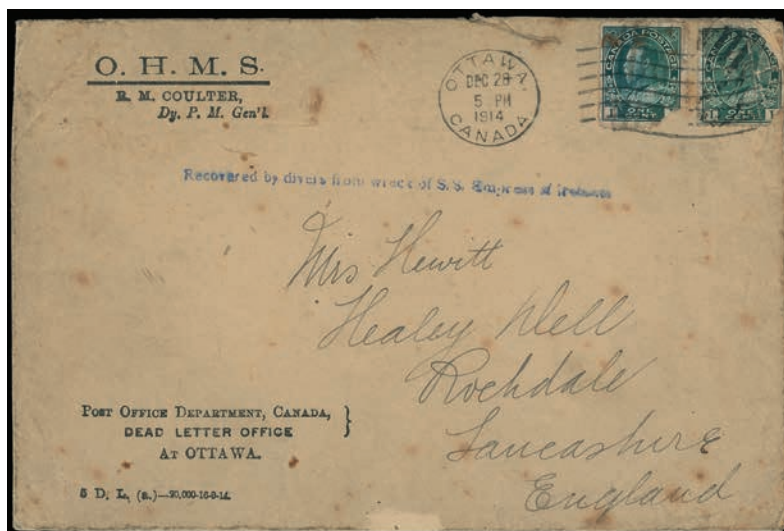 O. H. M. S.
R. M. COULTER,
Dy. P. M. Gen'l.
OTTAWA
DEC 28
5 PM
1914
CANADA
CANADA POSTAGE
ONE CENT
Recovered by divers from wreck of S.S. Empress of Ireland
Mrs Hewitt
Healey Dell
Rochdale
Lancashire
England
POST OFFICE DEPARTMENT, CANADA,
DEAD LETTER OFFICE
AT OTTAWA.
5 D. L. (a.)—20,000-16-9-14.